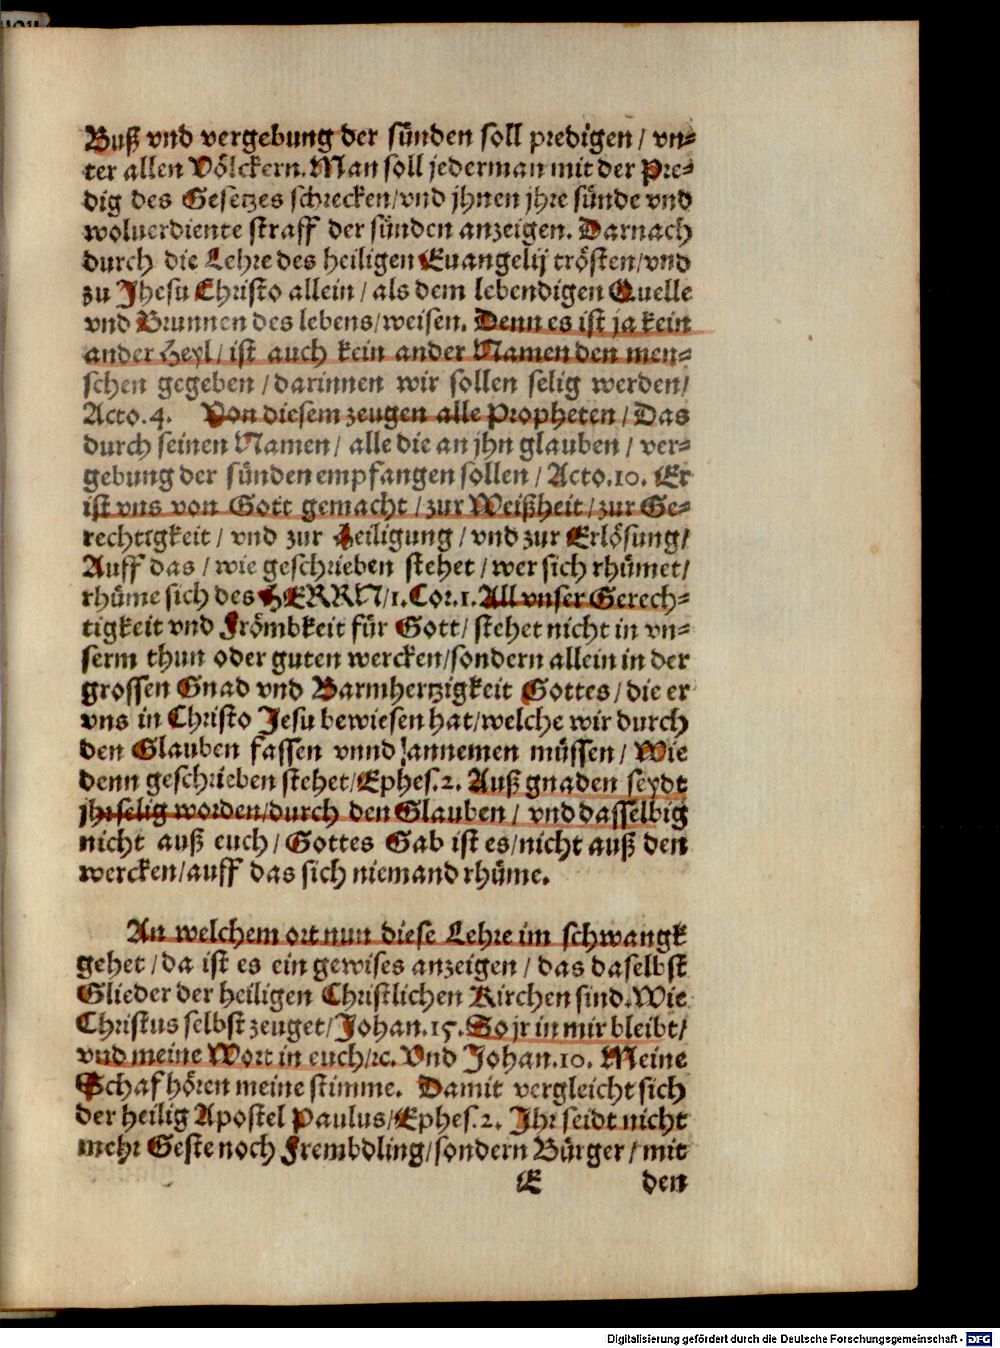 Buß vnd vergebung der sünden soll predigen / vn-
ter allen Völckern. Man soll jederman mit der Pre-
dig des Gesetzes schrecken/vnd jhnen jhre sünde vnd
woluerdiente straff der sünden anzeigen. Darnach
durch die Lehre des heiligen Euangelij trösten/vnd
zu Jhesu Christo allein / als dem lebendigen Quelle
vnd Brunnen des lebens/weisen. Denn es ist ja kein
ander Heyl / ist auch kein ander Namen den men-
schen gegeben / darinnen wir sollen selig werden/
Acto. 4. Von diesem zeugen alle Propheten / Das
durch seinen Namen / alle die an jhn glauben / ver-
gebung der sünden empfangen sollen / Acto. 10. Er
ist vns von Gott gemacht / zur Weißheit / zur Ge-
rechtigkeit / vnd zur Heiligung / vnd zur Erlösung/
Auff das / wie geschrieben stehet / wer sich rhümet/
rhüme sich des HERRN/1. Cor. 1. All vnser Gerech-
tigkeit vnd Frömbkeit für Gott/ stehet nicht in vn-
serm thun oder guten wercken/sondern allein in der
grossen Gnad vnd Barmhertzigkeit Gottes / die er
vns in Christo Jesu bewiesen hat/welche wir durch
den Glauben fassen vnnd annemen müssen / Wie
denn geschrieben stehet/Ephes. 2. Auß gnaden seydt
jhr selig worden/durch den Glauben / vnd dasselbig
nicht auß euch / Gottes Gab ist es/nicht auß den
wercken/auff das sich niemand rhüme.
An welchem ort nun diese Lehre im schwangk
gehet / da ist es ein gewises anzeigen / das daselbst
Glieder der heiligen Christlichen Kirchen sind. Wie
Christus selbst zeuget/ Johan. 15. So jr in mir bleibt/
vnd meine Wort in euch/ꝛc. Vnd Johan. 10. Meine
Schaf hören meine stimme. Damit vergleicht sich
der heilig Apostel Paulus/Ephes. 2. Ihr seidt nicht
mehr Geste noch Frembdling/sondern Bürger / mit
E den
Digitalisierung gefördert durch die Deutsche Forschungsgemeinschaft - DFG